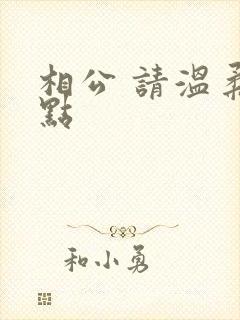 相公 請溫柔
點
和小勇